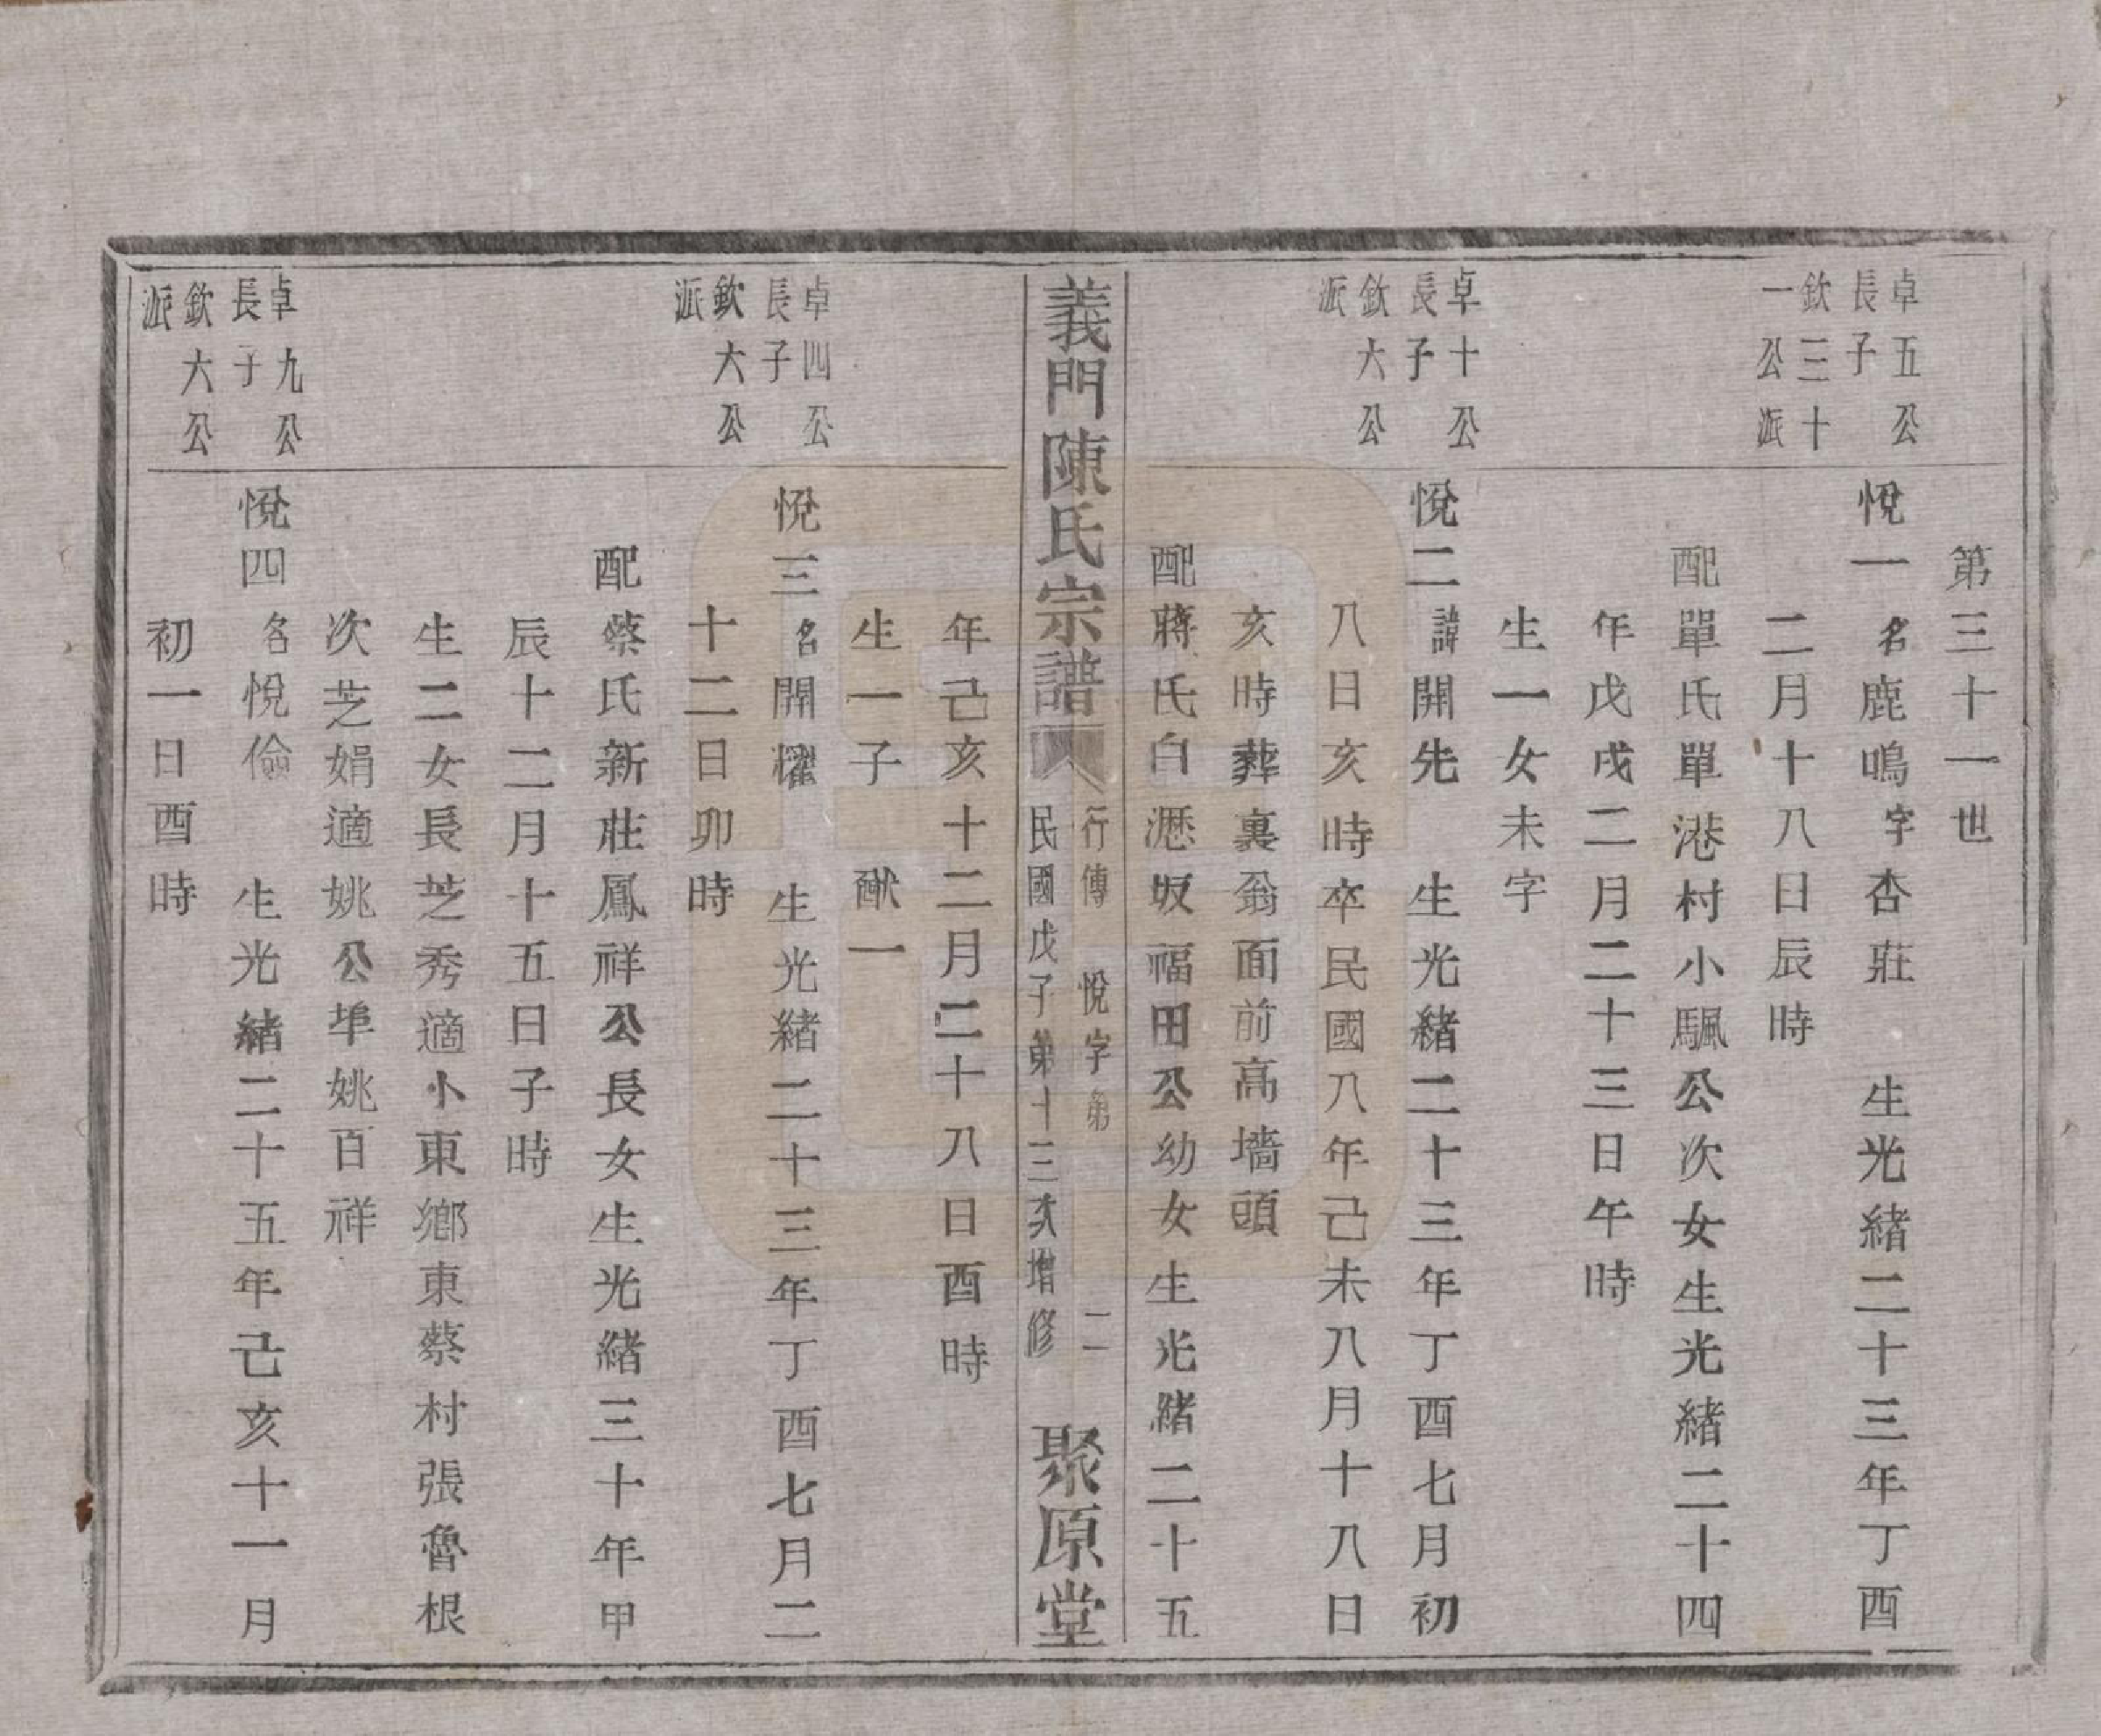 第三十一世
卓五公
長子
欽三十
一公派
悅一名鹿鳴字杏莊 生光緒二十三年丁酉
二月十八日辰時
配單氏單港村小颿公次女生光緒二十四
年戊戌二月二十三日午時
生一女未字
卓十公
長子
欽六公
派
悅二諱開先 生光緒二十三年丁酉七月初
八日亥時卒民國八年己未八月十八日
亥時葬裏翁面前高墻頭
配蔣氏白瀝坂福田公幼女生光緒二十五
義門陳氏宗譜
行傳 悅字弟 二
民國戊子第十三次增修
聚原堂
年己亥十二月二十八日酉時
生一子 猷一
卓四公
長子
欽六公
派
悅三名開糶 生光緒二十三年丁酉七月二
十二日卯時
配蔡氏新莊鳳祥公長女生光緒三十年甲
辰十二月十五日子時
生二女長芝秀適小東鄉東蔡村張魯根
次芝娟適姚公埠姚百祥
卓九公
長子
欽六公
派
悅四名悅儉 生光緒二十五年己亥十一月
初一日酉時